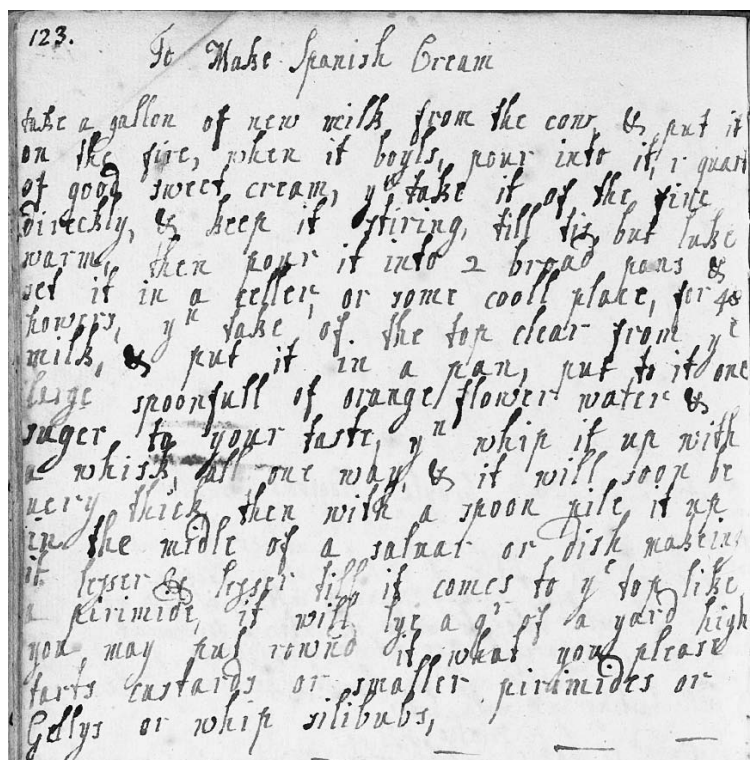 123.
To Make Spanish Cream
take a gallon of new milk from the cow, & put it
on the fire, when it boyls, pour into it, 1 quart
of good sweet cream, yn take it of the fire
direckly, & keep it stiring, till tis but luke
warm, then pour it into 2 broad pans &
set it in a celler, or some cooll place, for 48
howers, yn take of the top clear from ye
milk, & put it in a pan, put to it one
large spoonfull of orange flower water &
suger to your taste, yn whip it up with
a whisk, all one way, & it will soon be
uery thick, then with a spoon pile it up
in the midle of a saluar or dish makeing
it lesser & lesser till it comes to ye top like
a pirimide, it will lye a qr of a yard high
you may put rownd it what you please
tarts custards or smaller pirimides or
Gellys or whip silibubs,